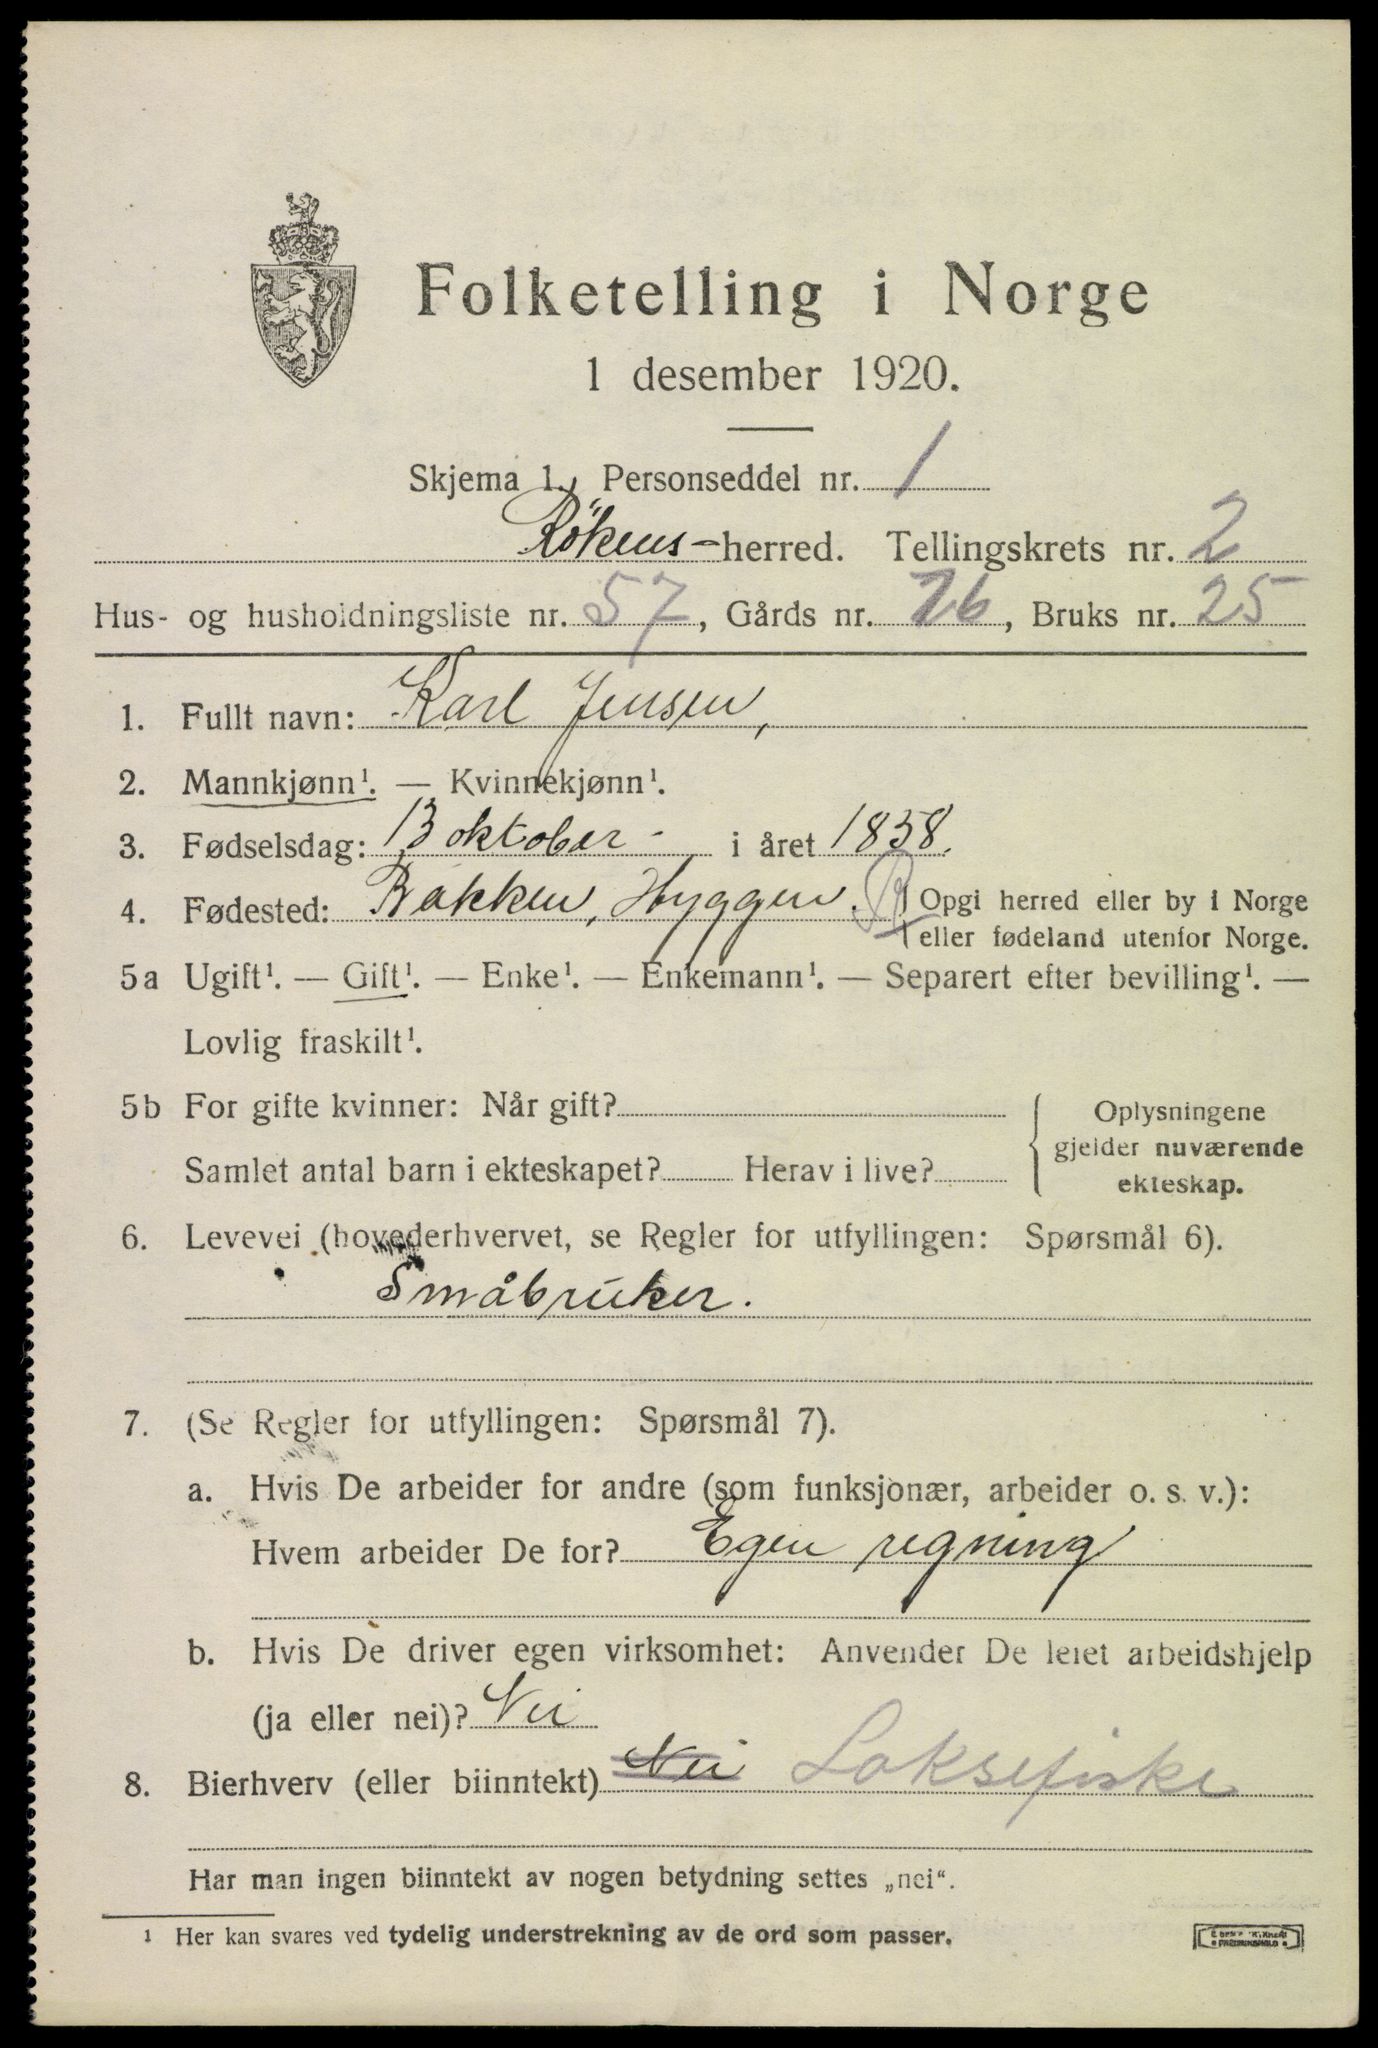 Folketelling i Norge
1 desember 1920.
Skjema 1. Personseddel nr. 1
Rökens-herred. Tellingskrets nr. 2
Hus- og husholdningsliste nr. 57, Gårds nr. 26, Bruks nr. 25
1. Fullt navn: Karl Jensen,
2. Mannkjønn¹. — Kvinnekjønn¹.
3. Fødselsdag: 13 oktober - i året 1858.
4. Fødested: Bakken, Hyggen. R Opgi herred eller by i Norge
eller fødeland utenfor Norge.
5a Ugift¹. — Gift¹. — Enke¹. — Enkemann¹. — Separert efter bevilling¹. —
Lovlig fraskilt¹.
5b For gifte kvinner: Når gift?
Samlet antal barn i ekteskapet? Herav i live?
Oplysningene
gjelder nuværende
ekteskap.
6. Levevei (hovederhvervet, se Regler for utfyllingen: Spørsmål 6).
Småbruker.
7. (Se Regler for utfyllingen: Spørsmål 7).
a. Hvis De arbeider for andre (som funksjonær, arbeider o. s. v.):
Hvem arbeider De for? Egen regning
b. Hvis De driver egen virksomhet: Anvender De leiet arbeidshjelp
(ja eller nei)? Nei
8. Bierhverv (eller biinntekt) Nei Laksefiske
Har man ingen biinntekt av nogen betydning settes „nei“.
¹ Her kan svares ved tydelig understrekning av de ord som passer.